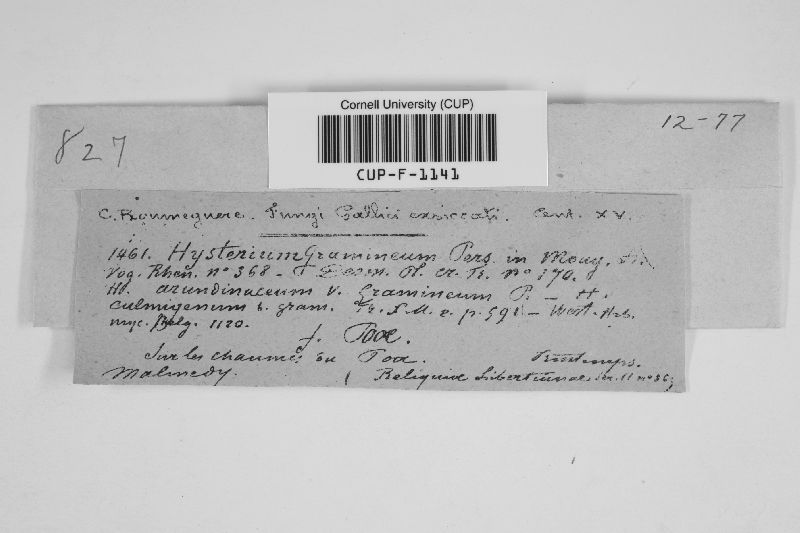 Cornell University (CUP)
CUP-F-1141
827
12-77
C. Roumeguere. Fungi Gallici exsiccati. Cent. XV.
1461. Hysterium Gramineum Pers. in Moug.
Vog. Rhen. nº 368 - Desm. Pl. cr. Fr. nº 170.
H. arundinaceum v. Gramineum P. - H.
culmigenum b. gram. Fr. S. M. 2. p. 591 - West. Hrb.
myc. Belg. 1120.
f. Poae.
Sur les chaumes du Poa. Printemps.
Malmedy. ( Reliquiae Libertianae Ser. II nº 36